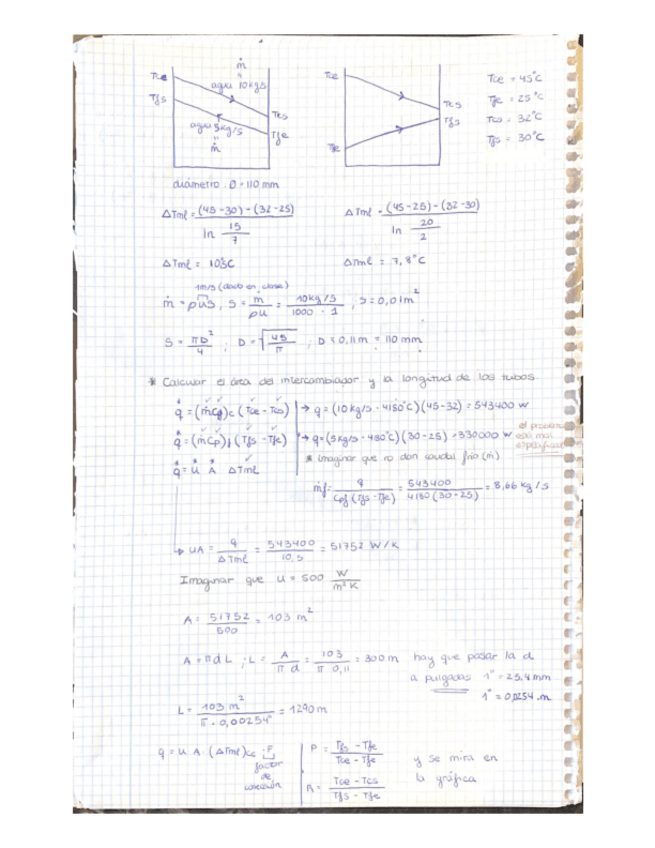 ṁ
Tce
agua 10kg/s
Tfs
Tcs
agua 5kg/s
Tfe
ṁ
Tce
Tcs
Tfs
Tfe
Tce = 45°C
Tfe = 25°C
Tcs = 32°C
Tfs = 30°C
diámetro: D = 110 mm
ΔTml = (45-30) - (32-25) / ln 15/7
ΔTml = (45-25) - (32-30) / ln 20/2
ΔTml = 7,8°C
1m/s (dado en clase)
ṁ = ρus, S = ṁ/ρu = 10kg/s / 1000 · 1, S = 0,01m²
S = πD²/4 ; D = √4S/π , D = 0,11m = 110 mm
* Calcular el área del intercambiador y la longitud de los tubos.
q̇ = (ṁCp)c (Tce - Tcs) → q = (10kg/s · 4180°C)(45-32) = 543400 W
q̇ = (ṁCp)f (Tfs - Tfe) → q = (5kg/s · 480°C)(30-25) = 330000 W
* Imaginar que no dan caudal frío (ṁ)
q̇ = u A ΔTml
ṁf = q / Cpf (Tfs - Tfe) = 543400 / 4180 (30-25) = 8,66 kg/s
→ UA = q / ΔTml = 543400 / 10,5 = 51752 W/K
Imaginar que u = 500 W / m² K
A = 51752 / 500 = 103 m²
A = π d L ; L = A / π d = 103 / π 0,11 = 300 m hay que pasar la d
a pulgadas 1" = 25,4 mm
1" = 0,0254 m
L = 103 m² / π · 0,00254 = 1290 m
q = u A · (ΔTml)cc · F
factor
de
corrección
P = Tfs - Tfe / Tce - Tfe
y se mira en
la gráfica
R = Tce - Tcs / Tfs - Tfe